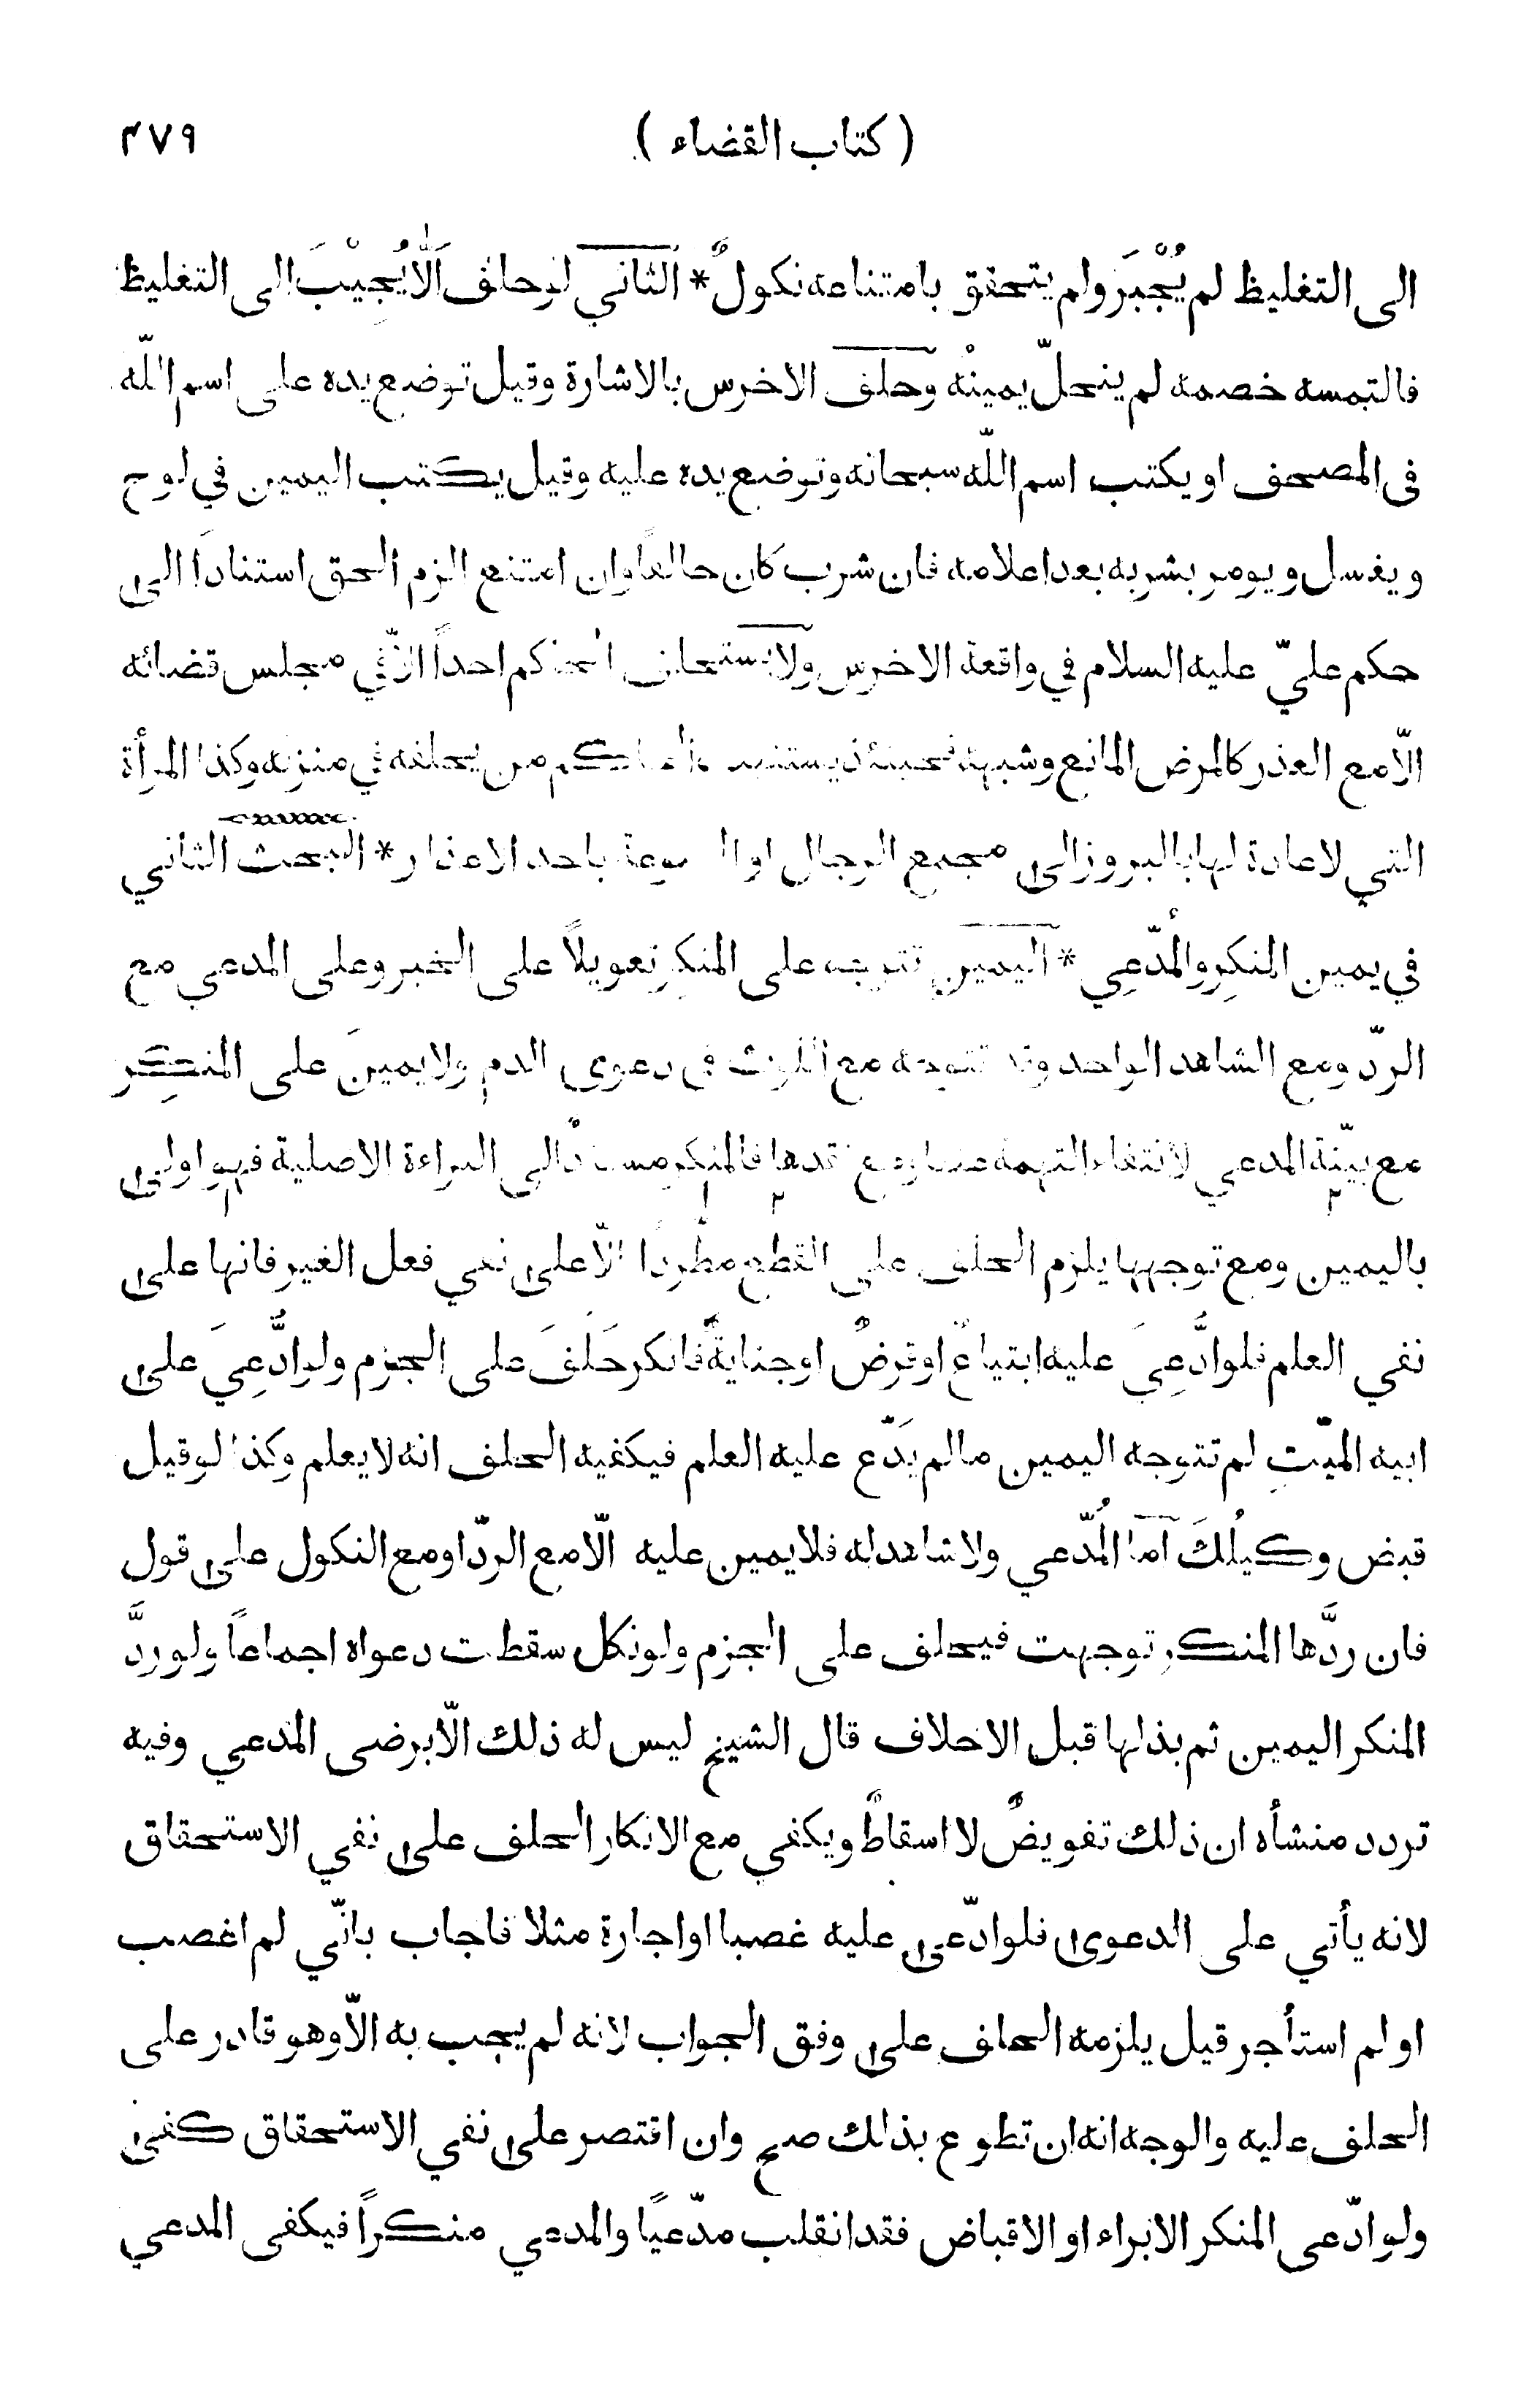 ( كتاب القضاء ) ٤٧٩
الى التغليظ لم يُجْبَر ولم يتحقق بامتناعه نكولٌ * الثاني لو حلف اَلّا يُجِيْبَ الى التغليظ
فالتمسه خصمه لم ينحلّ يمينُه وحلف الاخرس بالاشارة وقيل توضع يده على اسم اللّه
فى المصحف او يكتب اسم اللّه سبحانه وتوضع يده عليه وقيل يكتب اليمين في لوح
ويغسل ويومر بشربه بعد اعلامه فان شرب كان حالفاً وان امتنع الزم الحق استناداً الى
حكم عليّ عليه السلام في واقعة الاخرس ولا يستحلف الحاكم احداً الّا في مجلس قضائه
الّا مع العذر كالمرض المانع وشبهه فحينئذ يستنيب الحاكم من يحلفه في منزله وكذا المرأة
التي لا عادة لها بالبروز الى مجمع الرجال او الممنوعة باحد الاعذار * البحث الثاني
في يمين المنكِر والمُدّعِي * اليمين تتوجه على المنكِر تعويلاً على الخبر وعلى المدعي مع
الردّ ومع الشاهد الواحد وقد تتوجه مع اللوث في دعوى الدم ولا يمينَ على المنكِر
مع بيّنة المدعي لانتفاء التهمة عنها ومع فقدها فالمنكر مستندٌ الى البراءة الاصلية فهو اولى
باليمين ومع توجهها يلزم الحلف على القطع مطّرداً الّا على نفي فعل الغير فانها على
نفي العلم فلو ادُّعِيَ عليه ابتياعٌ او قرضٌ او جنايةٌ فانكر حَلَفَ على الجزم ولو ادُّعِيَ على
ابيه الميّتِ لم تتوجه اليمين ما لم يَدّع عليه العلم فيكفيه الحلف انه لا يعلم وكذا لو قيل
قبض وكيلُكَ اَما المُدّعي ولا شاهد له فلا يمين عليه الّا مع الردّ او مع النكول على قول
فان ردَّها المنكر توجهت فيحلف على الجزم ولو نكل سقطت دعواه اجماعاً ولو ردَّ
المنكر اليمين ثم بذلها قبل الاحلاف قال الشيخ ليس له ذلك الّا برضى المدعي وفيه
تردد منشأه ان ذلك تفويضٌ لا اسقاطٌ ويكفي مع الانكار الحلف على نفي الاستحقاق
لانه يأتي على الدعوى فلو ادّعى عليه غصبا او اجارة مثلا فاجاب بانّي لم اغصب
او لم استأجر قيل يلزمه الحلف على وفق الجواب لانه لم يجب به الّا وهو قادر على
الحلف عليه والوجه انه ان تطوع بذلك صح وان اقتصر على نفي الاستحقاق كفى
ولو ادّعى المنكر الابراء او الاقباض فقد انقلب مدّعيًا والمدعي منكراً فيكفى المدعي